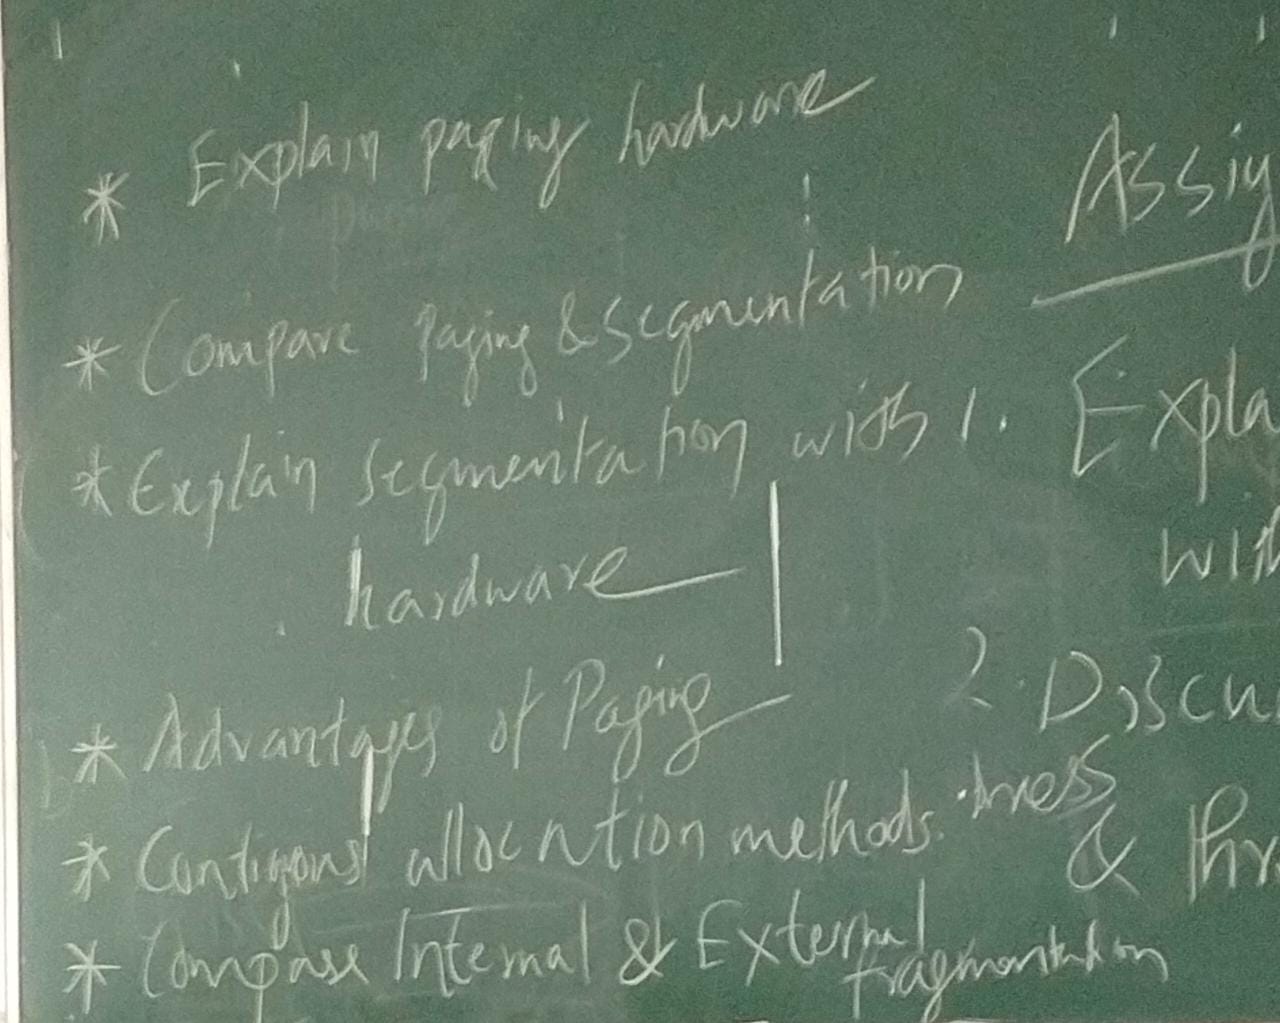 * Explain paging hardware
* Compare paging & segmentation
* Explain segmentation with
hardware
* Advantages of Paging
* Contigous allocation methods.
* Compase Internal & External
fragmentation
Assig
1. Expla
with
2. Discu
& thr